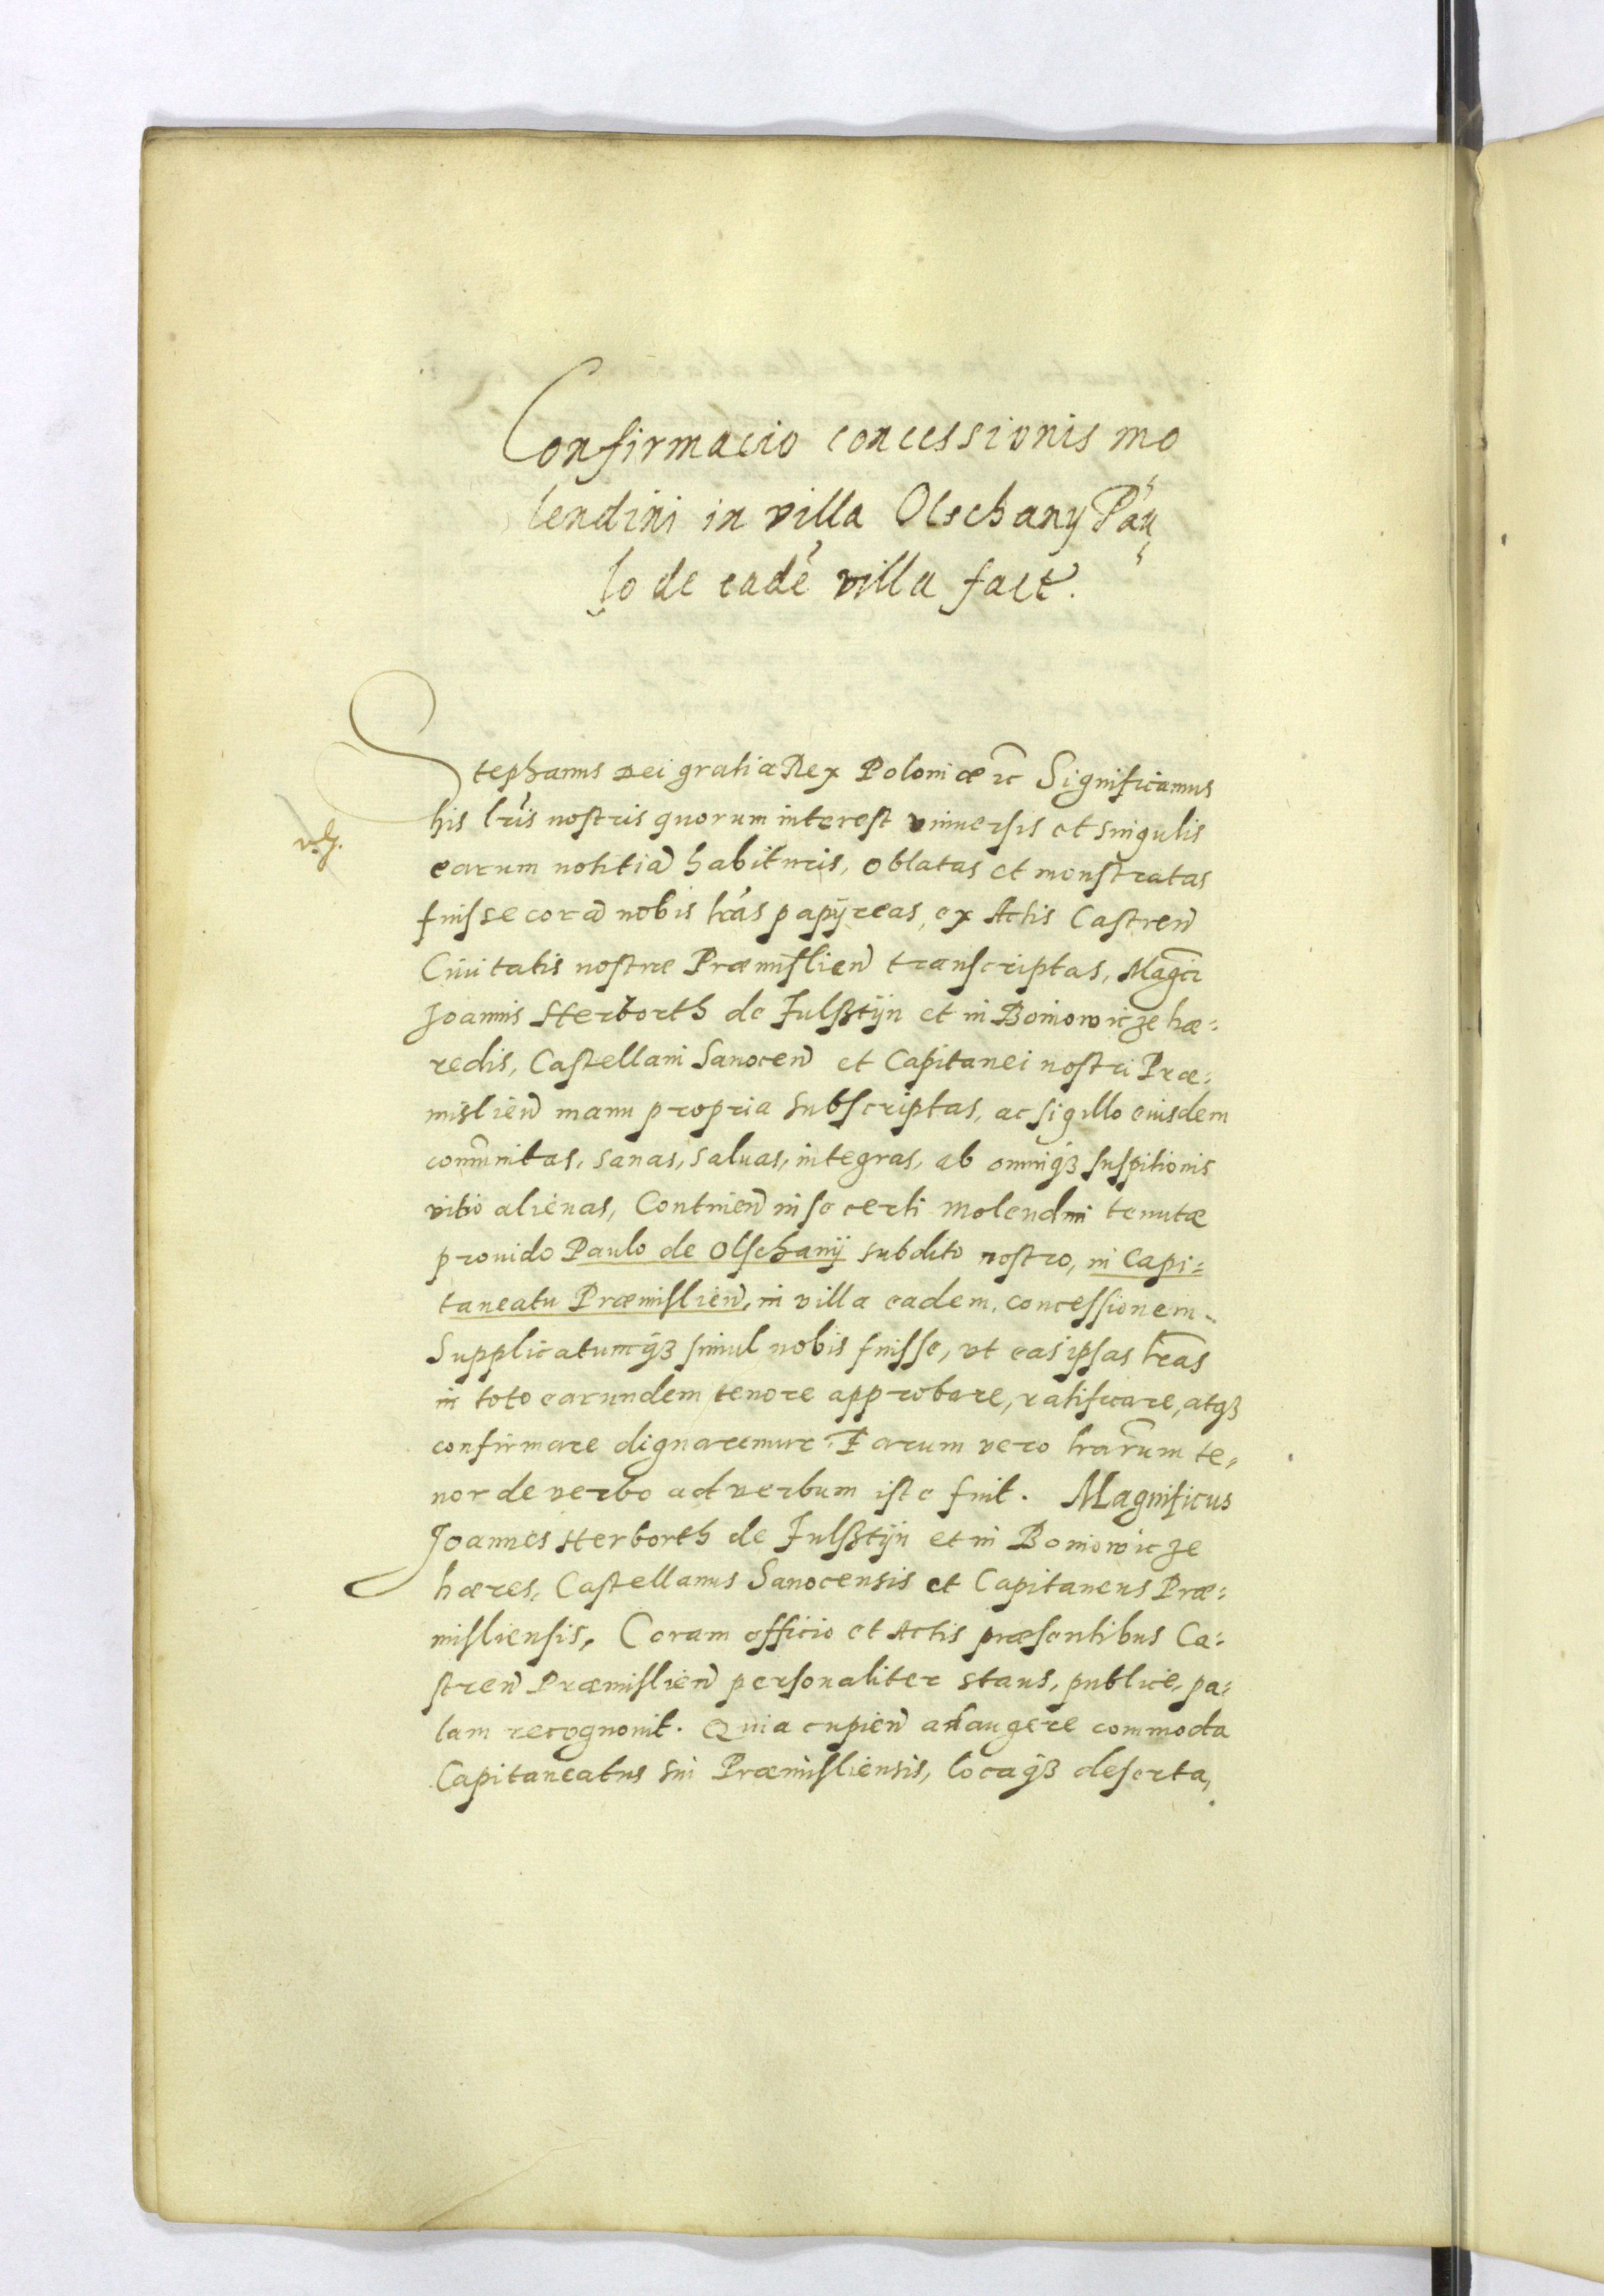 Confirmacio concessionis mo
lendini in villa Olschany Pau
lo de eadē villa fact.
Stephanus Dei gratia Rex Poloniæ ꝛc Significamus
his lr̄is nostris quorum interest vniuersis et singulis
v. g.
earum notitiā habituris, oblatas et monstratas
fuisse corā nobis lr̄as papÿreas, ex Actis Castren̄
Ciuitatis nostræ Præmislien̄ transcriptas, Mag̅ci
Joannis Herborth de Fulßtÿn et in Boniowicze hæ:
redis, Castellani Sanocen̄ et Capitanei nostri Præ:
mislien̄ manu propria subscriptas, ac sigillo eiusdem
com̄unitas, sanas, saluas, integras, ab omniqȝ suspitionis
vitio alienas, Continen̄ in se certi molendini tenutæ
prouido Paulo de Olschanÿ subdito nostro, in Capi:
taneatu Præmislien̄, in villa eadem, concessionem.
Supplicatumqȝ simul nobis fuisse, vt eas ipsas lr̄as
in toto earundem tenore approbare, ratificare, atqȝ
confirmare dignaremur. Earum vero lr̄arum te,
nor de verbo ad verbum iste fuit. Magnificus
Joannes Herborth de Fulßtÿn et in Boniowicze
hæres, Castellanus Sanocensis et Capitaneus Præ:
misliensis, Coram officio et Actis præsentibus Ca:
stren̄ Præmislien̄ personaliter stans, publice, pa:
lam recognouit. Quia cupien̄ adaugere commoda
Capitaneatus sui Præmisliensis, locaqȝ deserta,